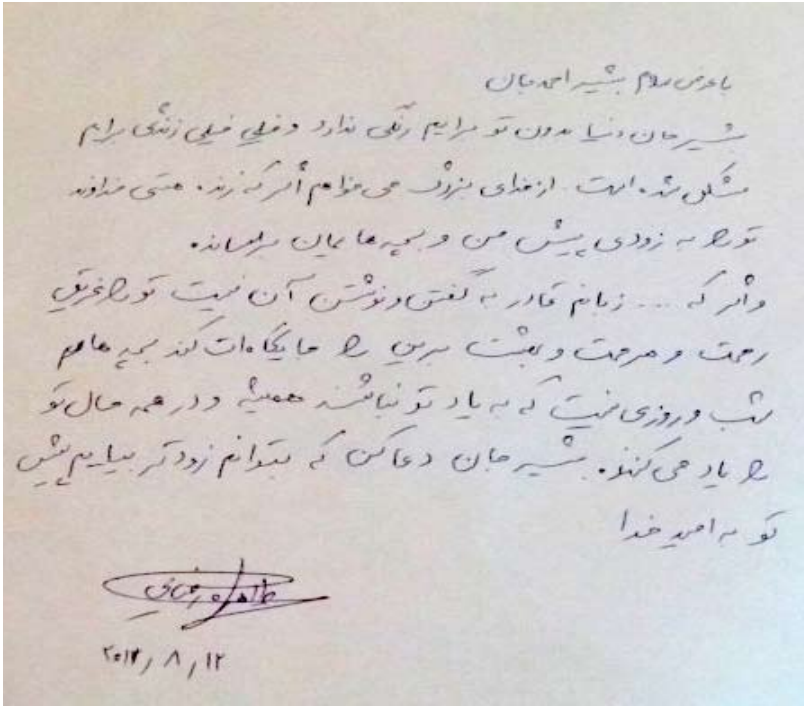 با عرض سلام بشیر احمد جان
بشیر جان دنیا بدون تو برایم رنگی ندارد و خیلی خیلی زندگی برایم
مشکل شده است. از خدای بزرگ می خواهم اگر که زنده هستی خداوند
تو را به زودی پیش من و بچه هایمان برساند.
و اگر که .... زبانم قادر به گفتن و نوشتن آن نیست تو را غریق
رحمت و مرحمت و بهشت برین را جایگاه ات کند بچه ها هم
شب و روزی نیست که به یاد تو نباشند همیشه و در همه حال تو
را یاد می کنند. بشیر جان دعا کن که بتوانم زودتر بیایم پیش
تو به امید خدا
طاهره
۲۰۱۳/۸/۱۲